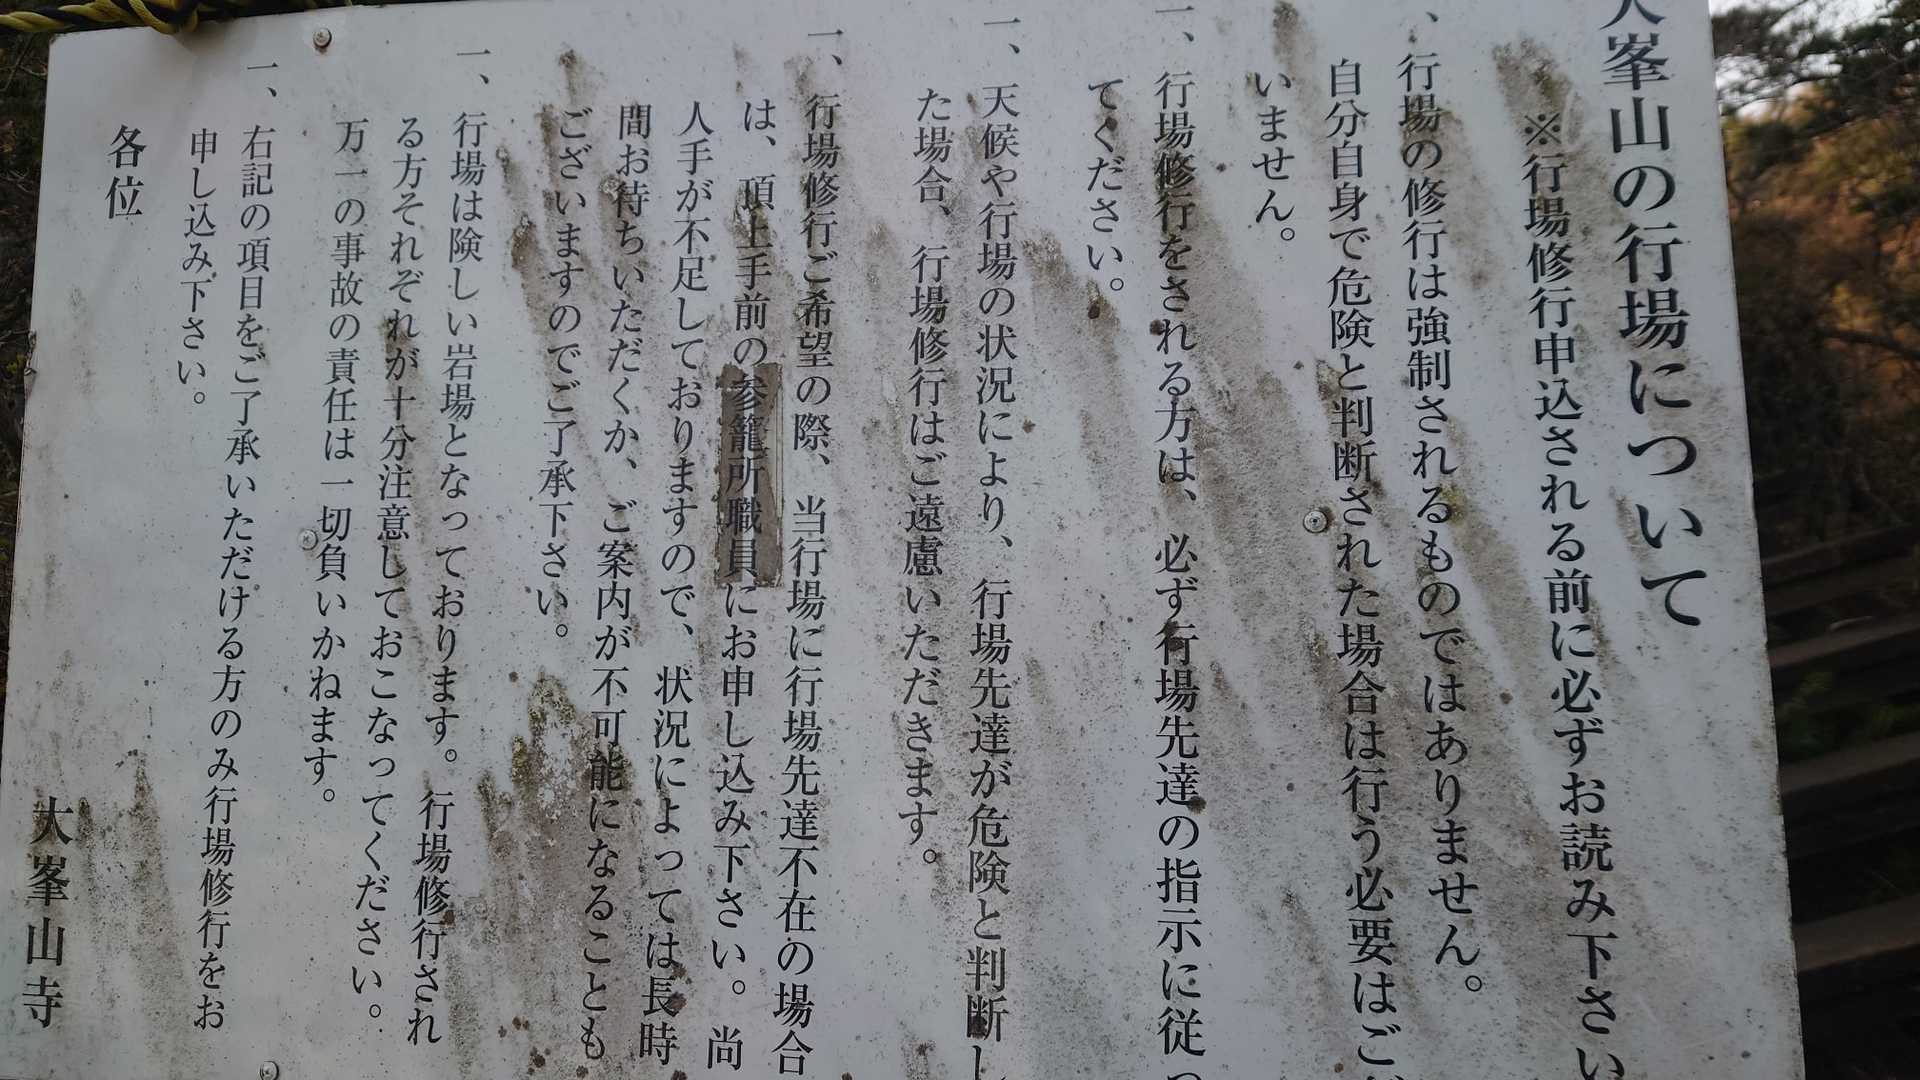 大峯山の行場について
※行場修行申込される前に必ずお読み下さい
一、行場の修行は強制されるものではありません。
自分自身で危険と判断された場合は行う必要はござ
いません。
一、行場修行をされる方は、必ず行場先達の指示に従っ
てください。
一、天候や行場の状況により、行場先達が危険と判断し
た場合、行場修行はご遠慮いただきます。
一、行場修行ご希望の際、当行場に行場先達不在の場合
は、頂上手前の参籠所職員にお申し込み下さい。尚
人手が不足しておりますので、状況によっては長時
間お待ちいただくか、ご案内が不可能になることも
ございますのでご了承下さい。
一、行場は険しい岩場となっております。行場修行され
る方それぞれが十分注意しておこなってください。
万一の事故の責任は一切負いかねます。
一、右記の項目をご了承いただける方のみ行場修行をお
申し込み下さい。
各位
大峯山寺